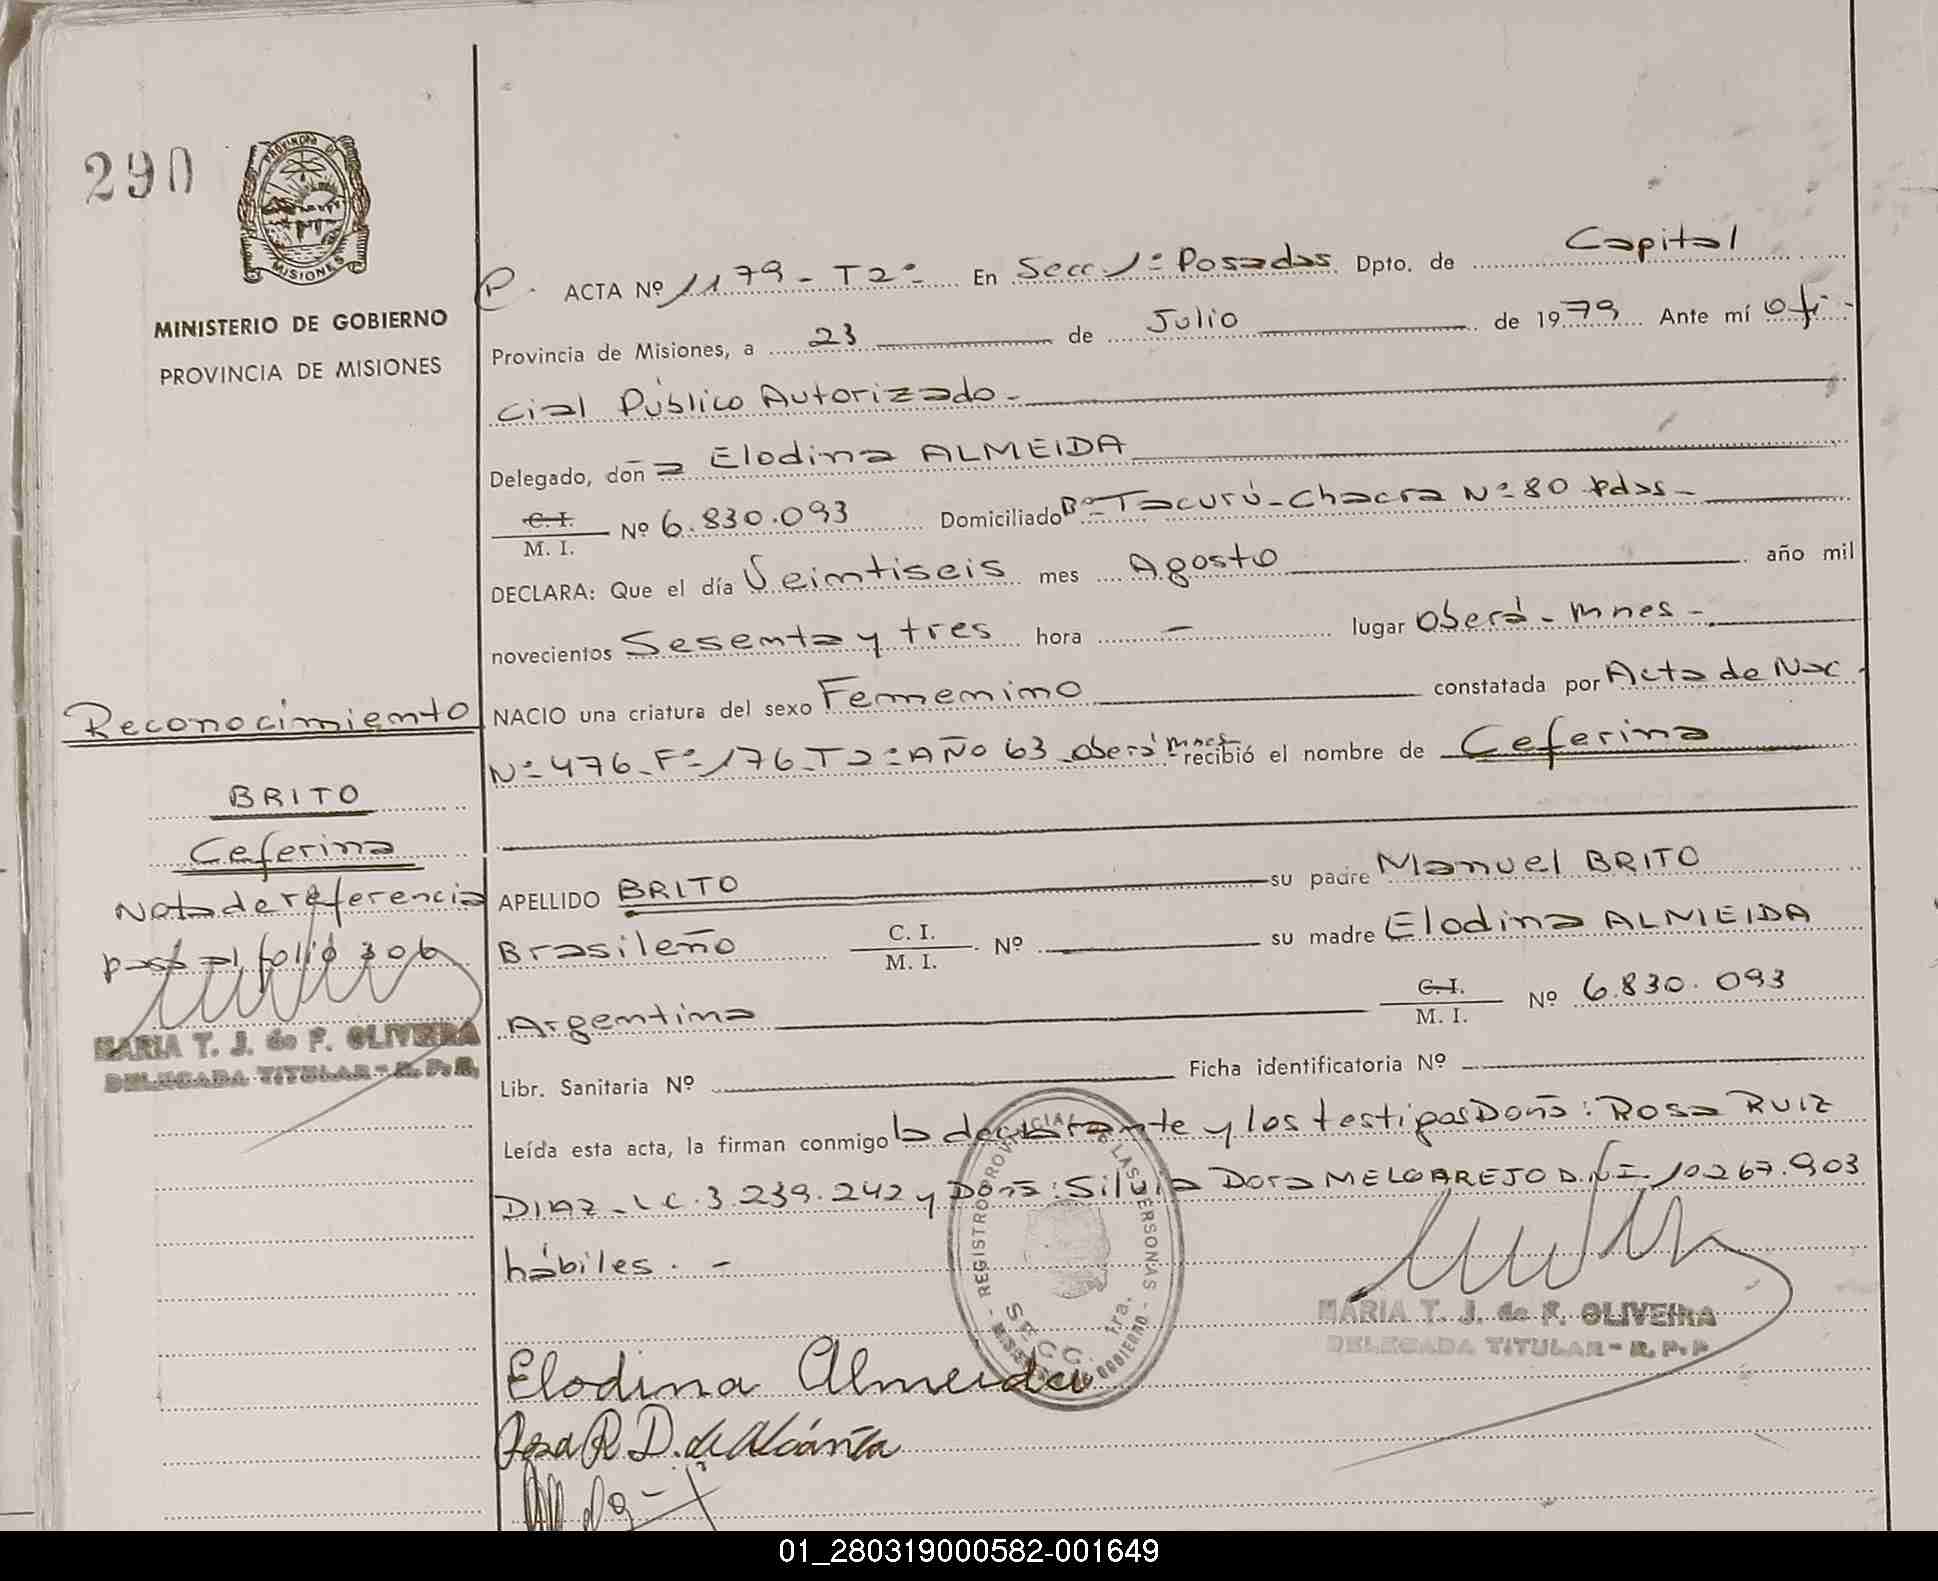 290
PROVINCIA DE
MISIONES
MINISTERIO DE GOBIERNO
PROVINCIA DE MISIONES
P. ACTA Nº 1179 - T2º En Secc 1º Posadas Dpto. de Capital
Provincia de Misiones, a 23 de Julio de 1979 Ante mí ofi-
cial Público Autorizado -
Delegado, doña Elodina ALMEIDA
C. I. / M. I. Nº 6.830.093 Domiciliado Bº Tacurú - Chacra Nº 80 Pdas -
DECLARA: Que el día Veintiseis mes Agosto año mil
novecientos Sesenta y tres hora - lugar Oberá - Mnes -
NACIO una criatura del sexo Femenino constatada por Acta de Nac.
Nº 476 - Fº 176 - T2º AÑO 63 - Oberá Mnes - recibió el nombre de Ceferina
APELLIDO BRITO su padre Manuel BRITO
Brasileño C. I. / M. I. Nº su madre Elodina ALMEIDA
Argentina C. I. / M. I. Nº 6.830.093
Libr. Sanitaria Nº Ficha identificatoria Nº
Leída esta acta, la firman conmigo la declarante y los testigos Doña: Rosa RUIZ
DIAZ - L.C. 3.239.242 y Doña: Silvia Dora MELGAREJO D.N.I. 10.267.903
hábiles. -
REGISTRO PROVINCIAL DE LAS PERSONAS
SECC. 1ra.
MARIA T. J. de F. OLIVEIRA
DELEGADA TITULAR - R. P. P.
Elodina Almeida
Rosa R D. de Alcántara
Reconocimiento
BRITO
Ceferina
Nota de referencia
pasa al folio 306
MARIA T. J. de F. OLIVEIRA
DELEGADA TITULAR - R. P. P.
01_280319000582-001649